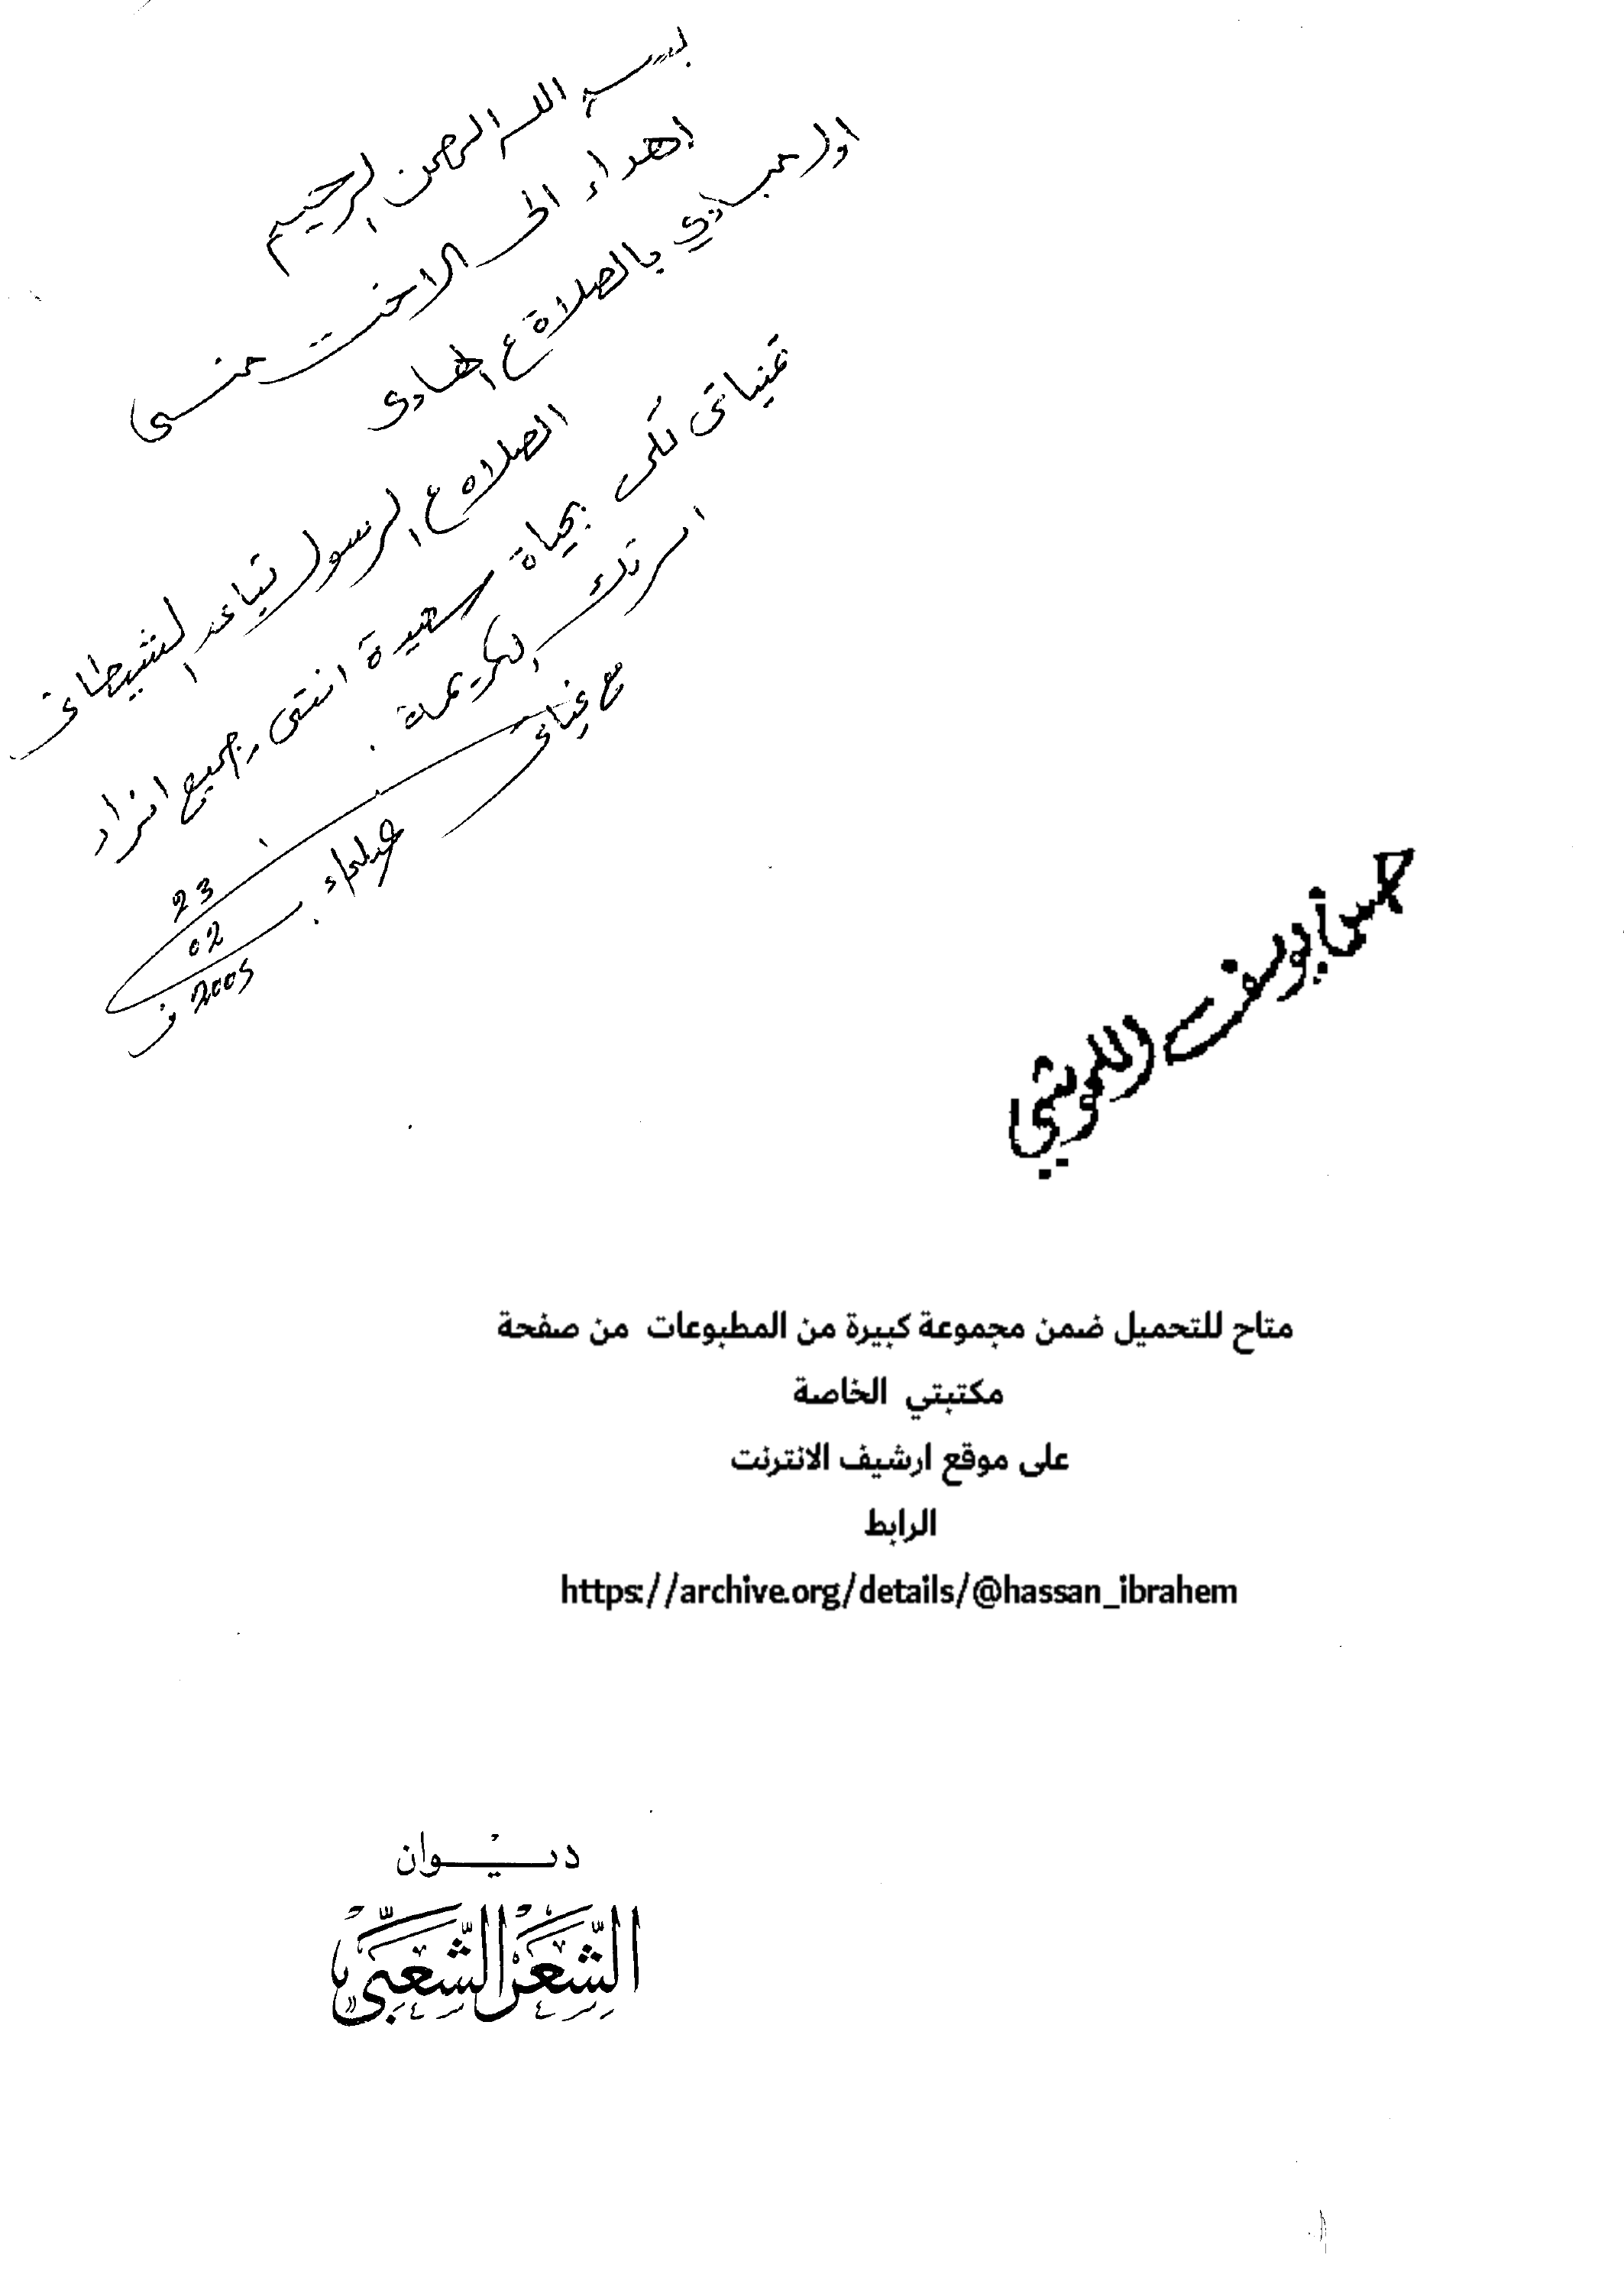 بسم الله الرحمن الرحيم
اهداء الى الاخت
اول مبادي بالصلاة ع الهادى
الصلاه ع الرسول تباعد الشيطان
تمنياتى لكى بحياة سعيدة انتى وجميع افراد
اسرتك الكريمة .
مع تمنياتى
23
02
2005 ف
حسن يوسف اللموشي
متاح للتحميل ضمن مجموعة كبيرة من المطبوعات من صفحة
مكتبتي الخاصة
على موقع ارشيف الانترنت
الرابط
https://archive.org/details/@hassan_ibrahem
ديوان
الشعر الشعبي